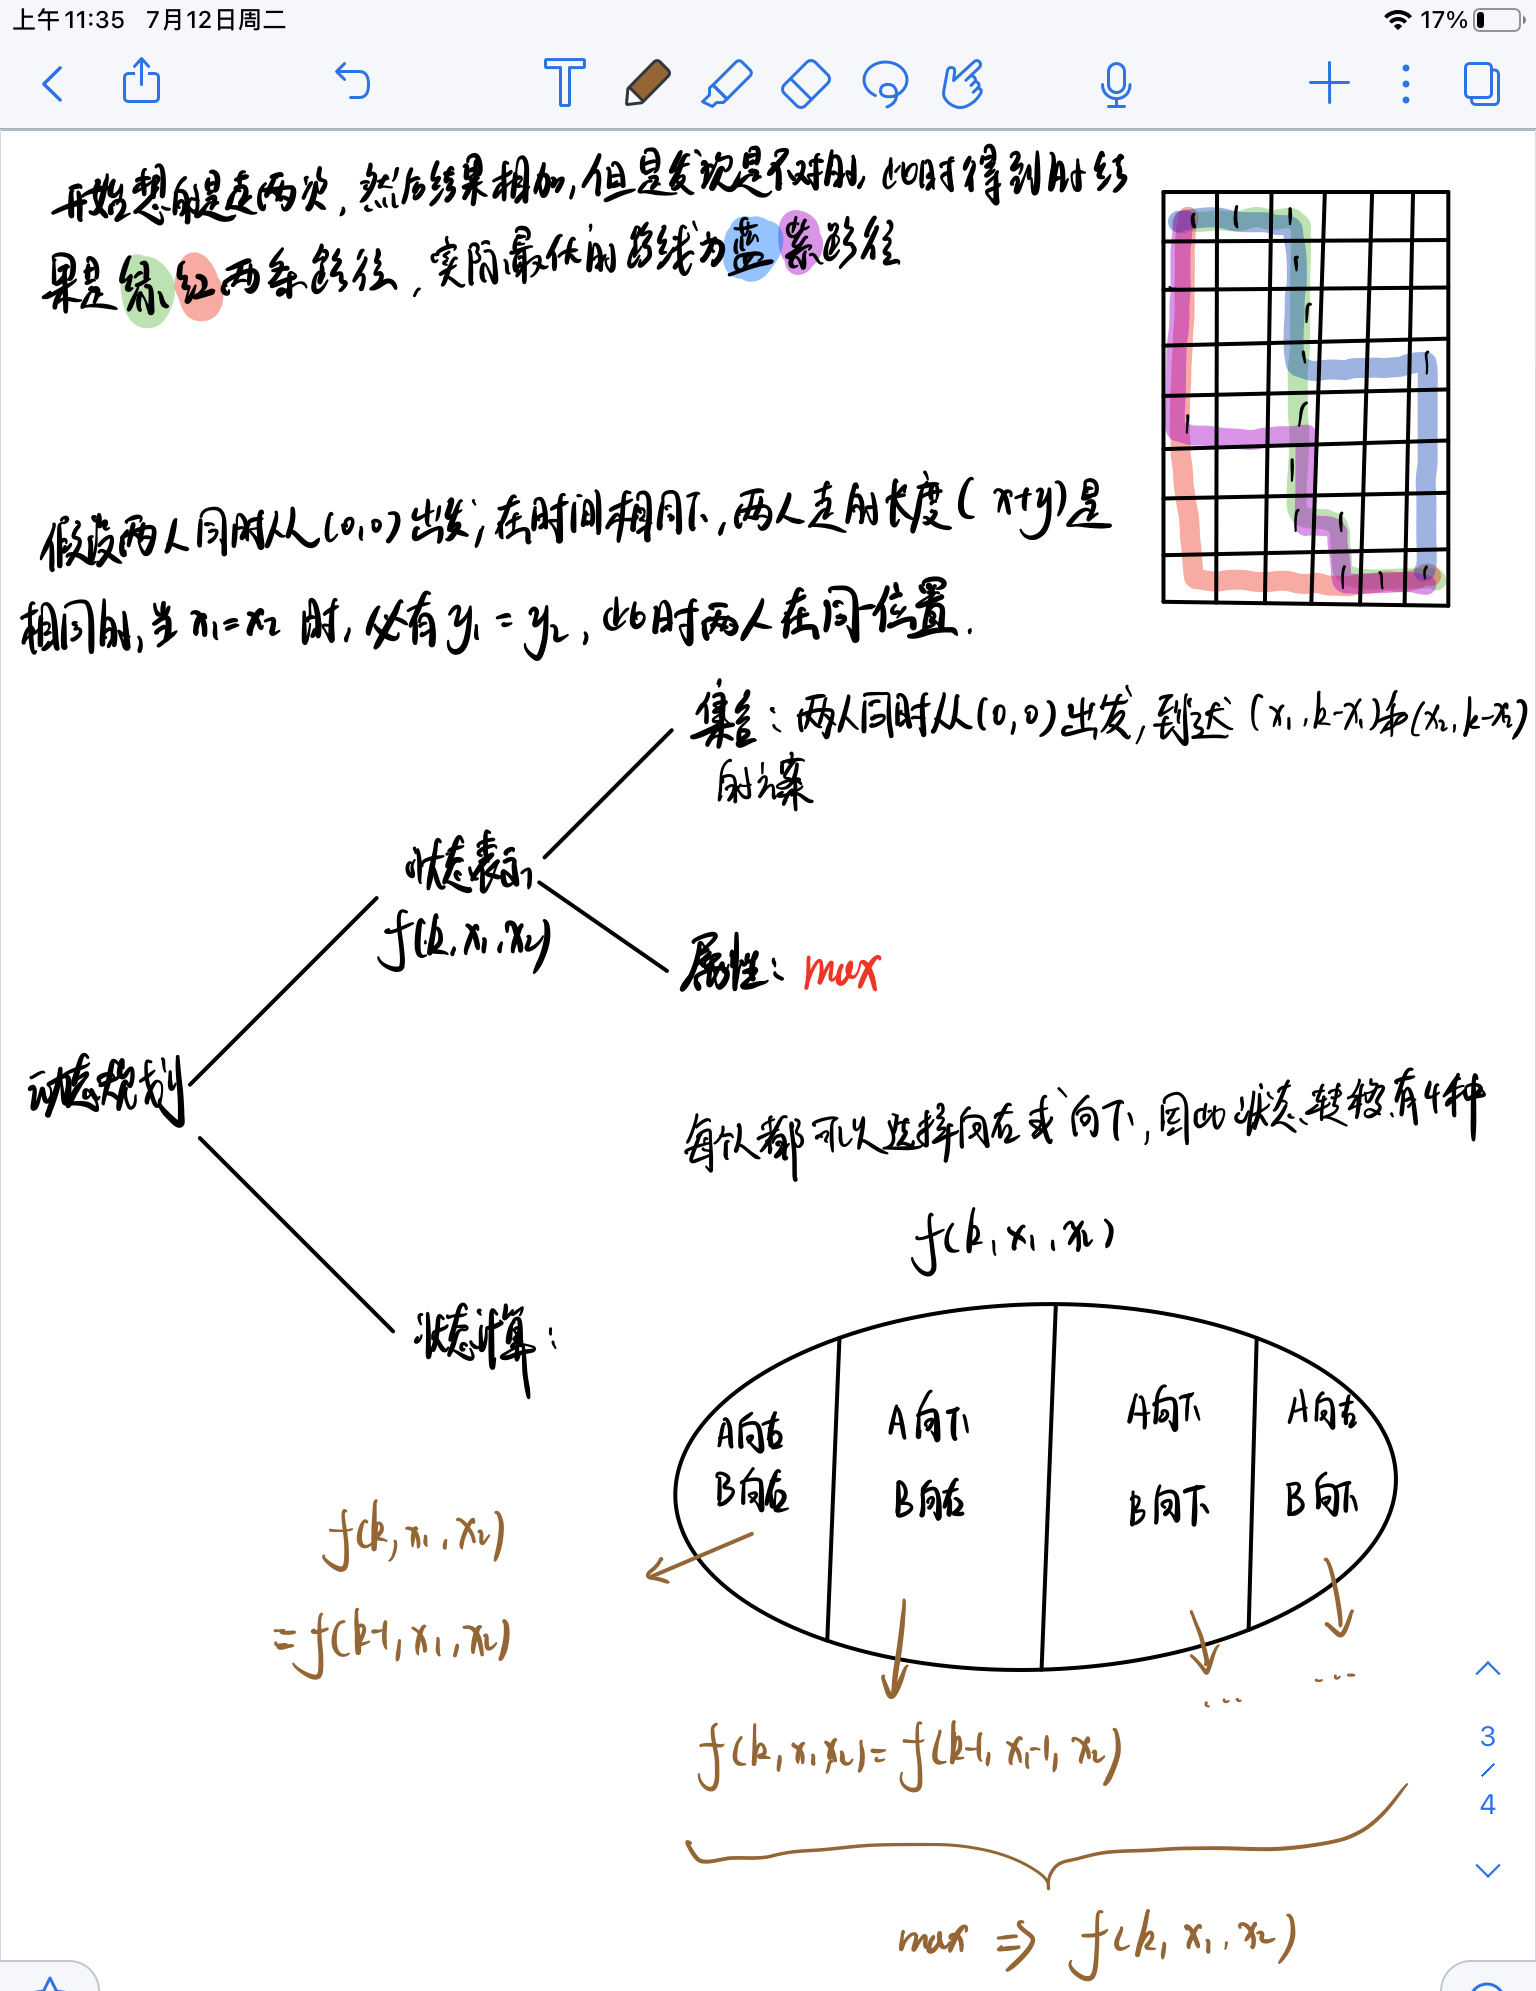 上午11:35 7月12日周二
17%
开始想的是走两次,然后结果相加,但是发现是不对的,此时得到的结
果是绿红两条路径,实际最优的路线为蓝紫路径
假设两人同时从(0,0)出发,在时间相同下,两人走的长度(x+y)是
相同的,当x₁=x₂时,必有y₁=y₂,此时两人在同一位置.
集合:两人同时从(0,0)出发,到达(x₁,k-x₁)和(x₂,k-x₂)
的方案
状态表示
f(k,x₁,x₂)
属性:max
动态规划
每个人都可以选择向右或向下,因此状态转移有4种
f(k,x₁,x₂)
状态计算:
A向右 A向下 A向下 A向右
B向右 B向右 B向下 B向下
f(k,x₁,x₂)
=f(k-1,x₁,x₂)
... ...
f(k,x₁,x₂)=f(k-1,x₁-1,x₂)
3
/
4
max ⇒ f(k,x₁,x₂)